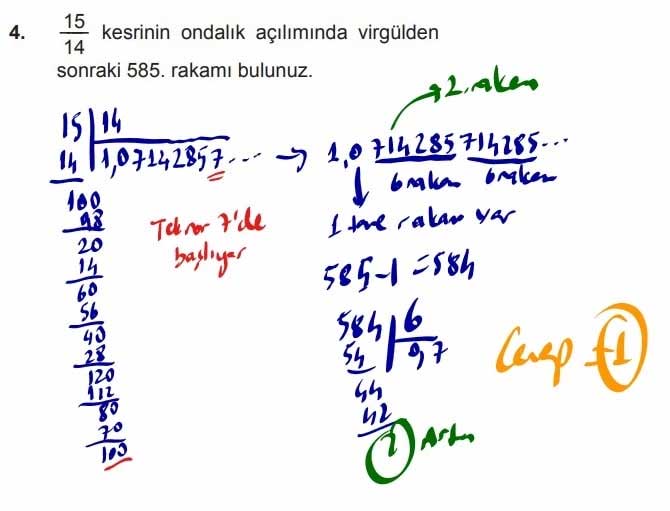 4. 15/14 kesrinin ondalık açılımında virgülden
sonraki 585. rakamı bulunuz.
15 | 14
14 | 1,07142857... → 1,0 714285 714285...
2. rakam
6 rakam 6 rakam
1 tane rakam var
100
98
20
14
60
56
40
28
120
112
80
70
100
Tekrar 7'de
başlıyor
585-1=584
584 | 6
54 | 97
44
42
2 Artan
Cevap = 1